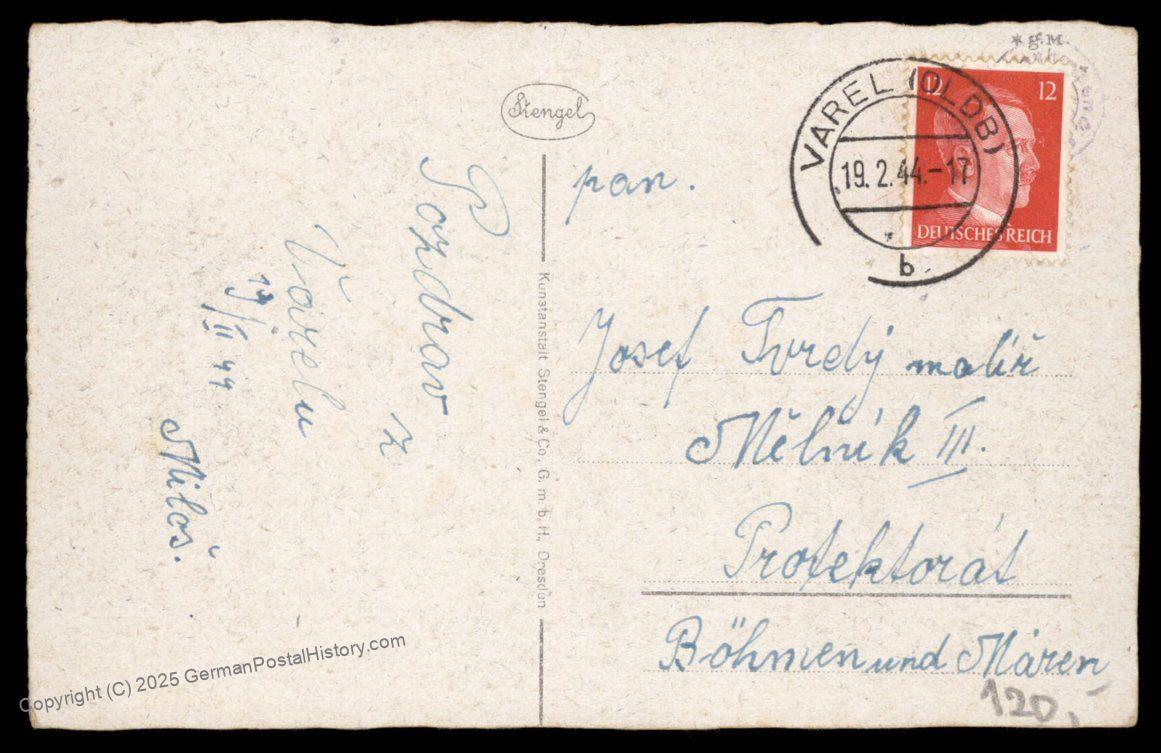 Stengel
Pozdrav
z
Varelu
17/II 44
Miloš.
Kunstanstalt Stengel & Co., G. m. b. H., Dresden
* g.M.
VAREL (OLDB)
19.2.44.-17
b
12
12
DEUTSCHES REICH
pan.
Josef Tvrdý malíř
Mělník III.
Protektorát
Böhmen und Mären
120,
Copyright (C) 2025 GermanPostalHistory.com